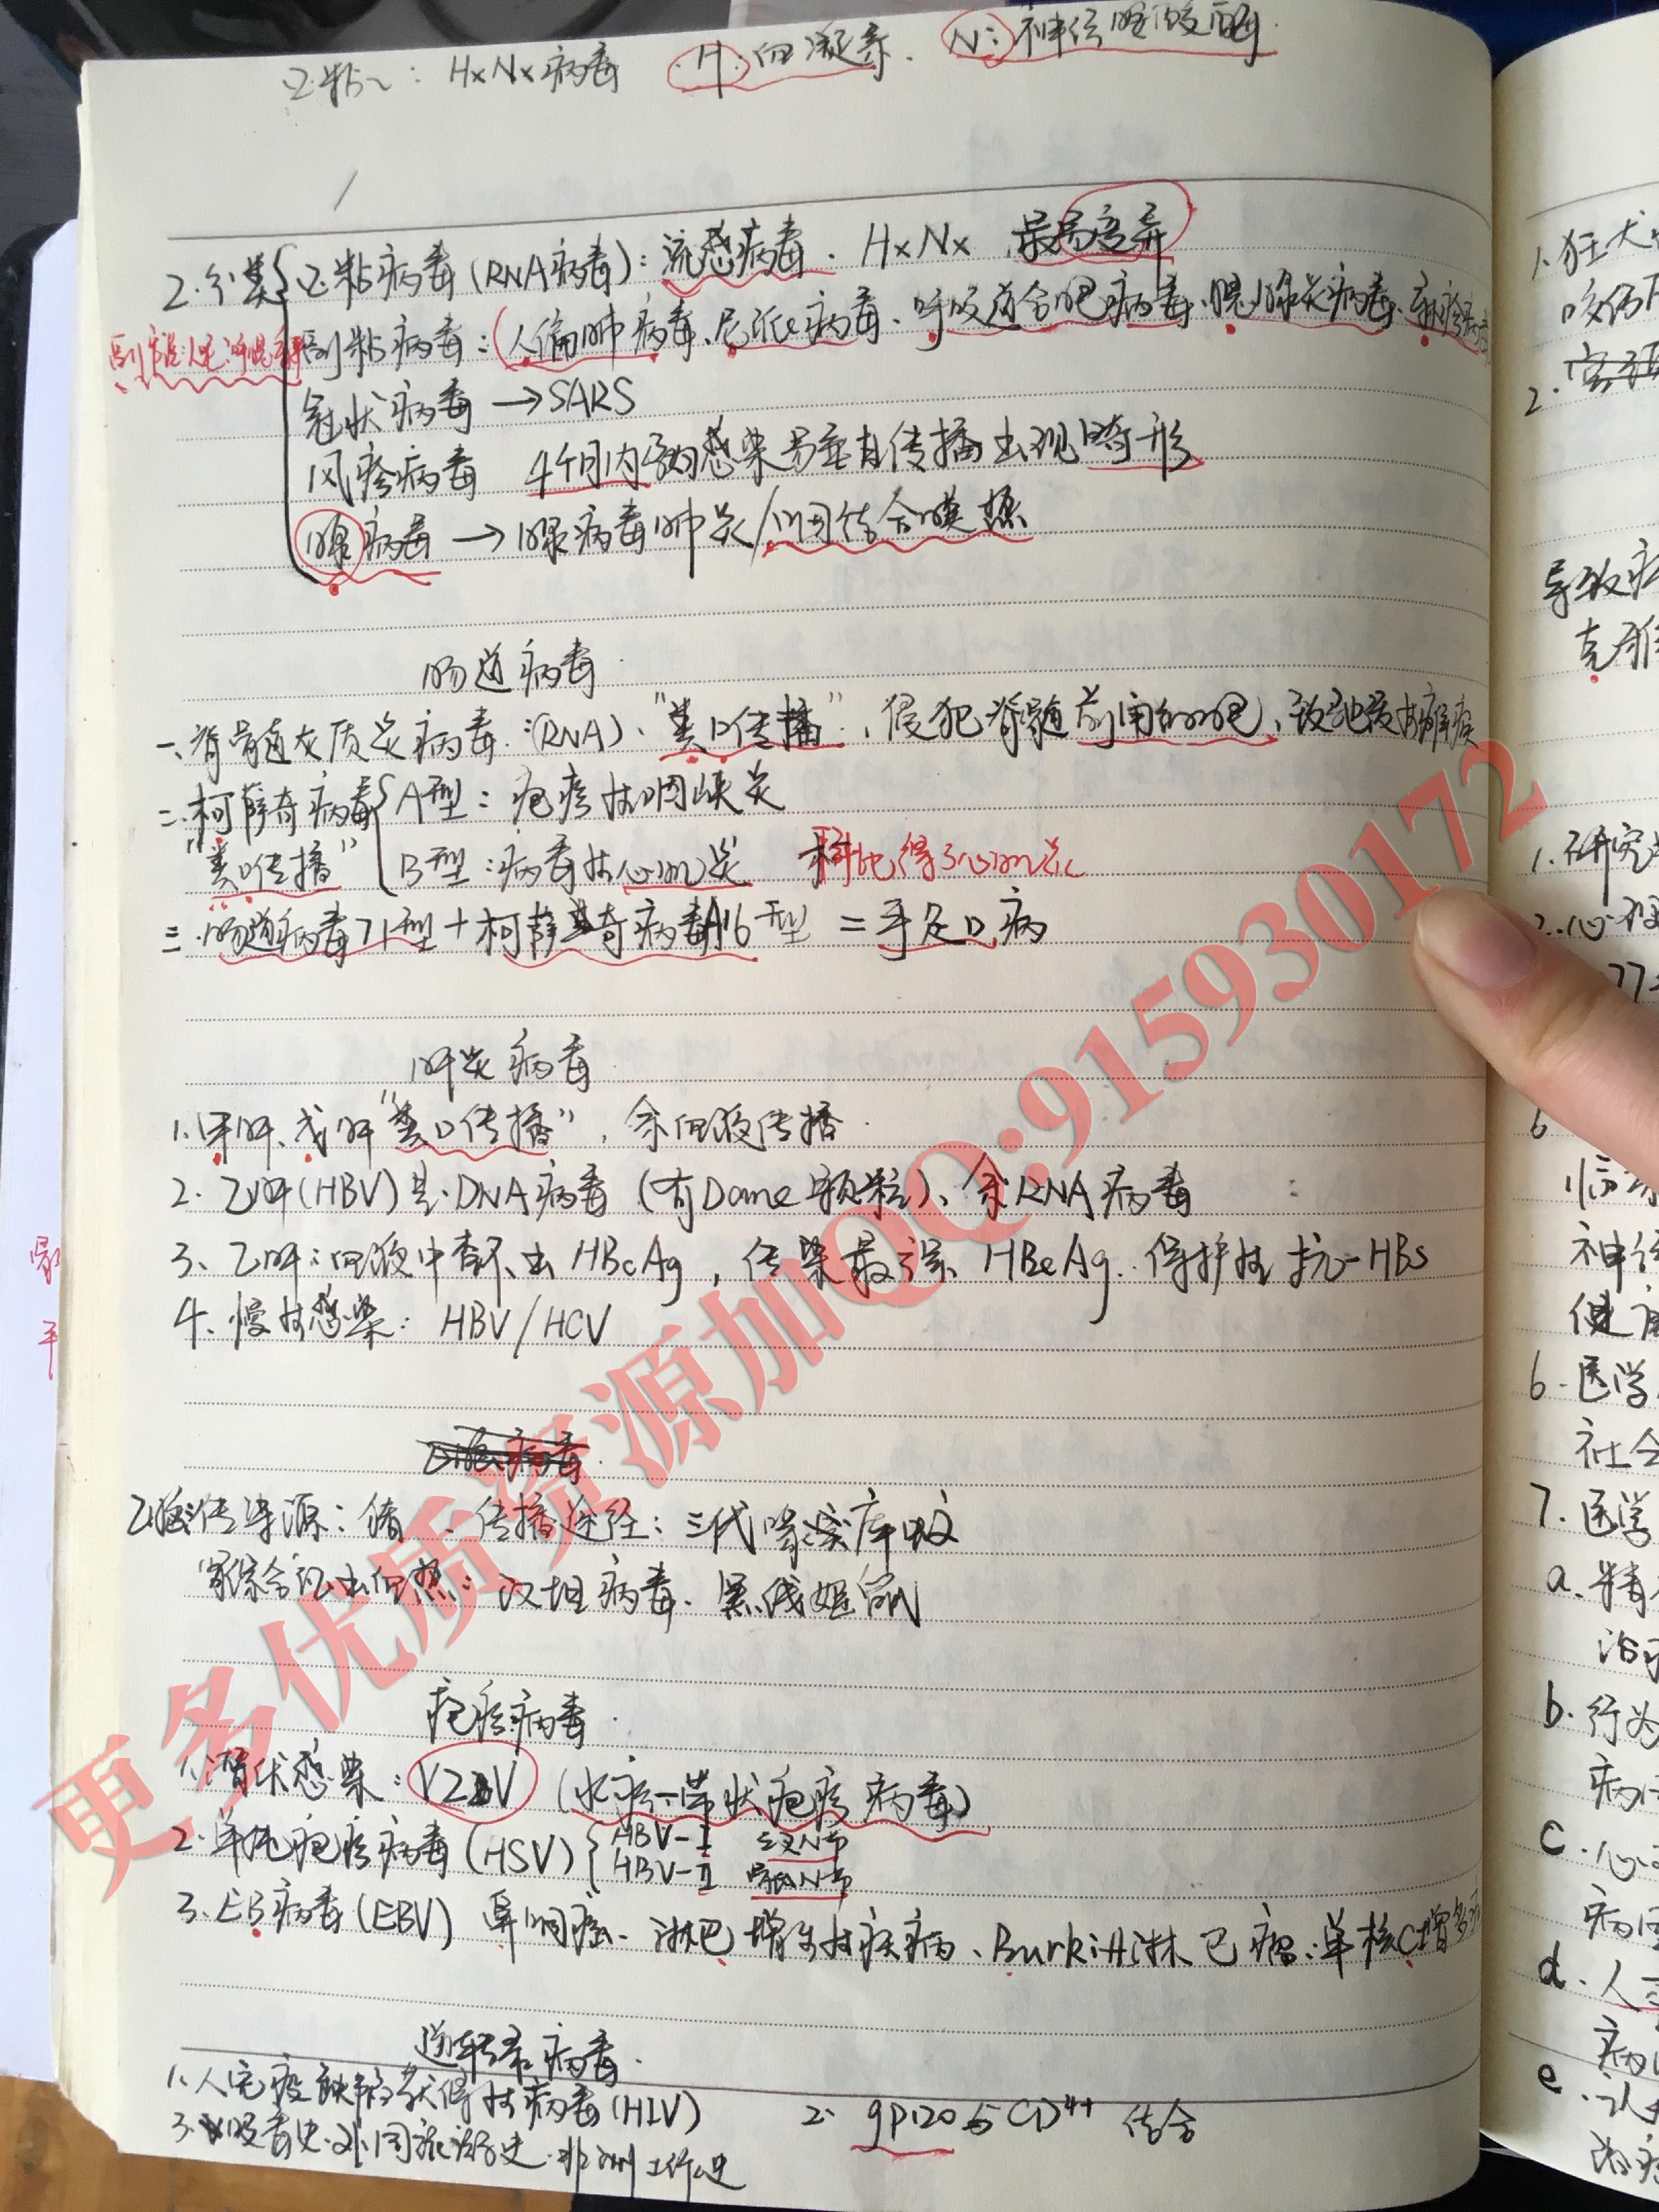 正粘~：HxNx病毒 H:血凝素. N:神经氨酸酶.
2.分类 正粘病毒(RNA病毒)：流感病毒. HxNx 最易变异
副粘病毒：人偏肺病毒、尼派病毒、呼吸道合胞病毒、腮腺炎病毒、麻疹病毒
冠状病毒→SARS
风疹病毒 4个月内孕妇感染易垂直传播出现畸形
腺病毒→腺病毒肺炎/咽结合膜热
肠道病毒
一、脊髓灰质炎病毒：(RNA)、"粪口传播"，侵犯脊髓前角细胞，致弛缓性瘫痪
二.柯萨奇病毒 A型：疱疹性咽峡炎
"粪口传播" B型：病毒性心肌炎 科比得了心肌炎
三.肠道病毒71型+柯萨奇病毒A16型=手足口病
肝炎病毒
1.甲肝、戊肝"粪口传播"，余血液传播.
2.乙肝(HBV)是DNA病毒(有Dane颗粒)、余RNA病毒
3、乙肝：血液中查不出HBcAg，传染最强HBeAg.保护性抗-HBs
4、慢性感染：HBV/HCV
乙脑：传染源：猪、传播途径：三代喙库蚊
肾综合征出血热：汉坦病毒、黑线姬鼠
疱疹病毒.
1.潜伏感染：VZV(水痘一带状疱疹病毒)
2.单纯疱疹病毒(HSV) HBV-I 三叉N节
HBV-II 骶N节
3.EB病毒(EBV) 鼻咽癌、淋巴增生性疾病、Burkitt淋巴瘤、单核C增多
逆转录病毒.
1.人免疫缺陷获得性病毒(HIV) 2. gp120与CD4+结合
3.吸毒史.外国旅游史.非洲工作史
1.狂犬
咬伤
2.
导致
克雅
1.研究
2.心
77
6
临
神经
健康
6.医学
社会
7.医学
a.精
治
b.行为
病
c.心
病
d.人
病
e.认
为
更多优质资源加QQ:915930172